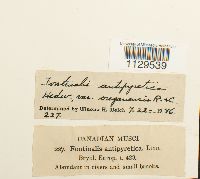 1129539
Fontinalis antipyretica
Hedw. var. oregonensis R. & C.
Determined by Winona H. Welch
227
CANADIAN MUSCI
227. Fontinalis antipyretica, Linn.
Bryol. Europ. t. 429.
Abundant in rivers and small brooks.